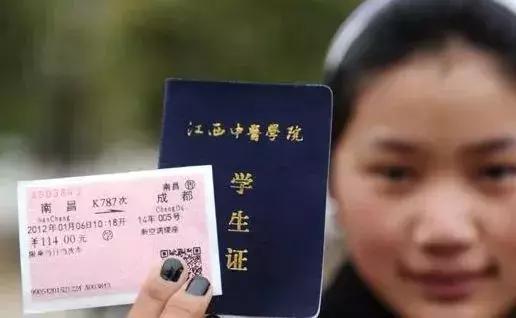 A003843
南昌 K787次 成都
南昌 售
NanChang
ChengDu
2012年01月06日10:18开 14车005号
￥114.00元 学 新空调硬座
限乘当日当次车
江西中醫學院
学
生
证